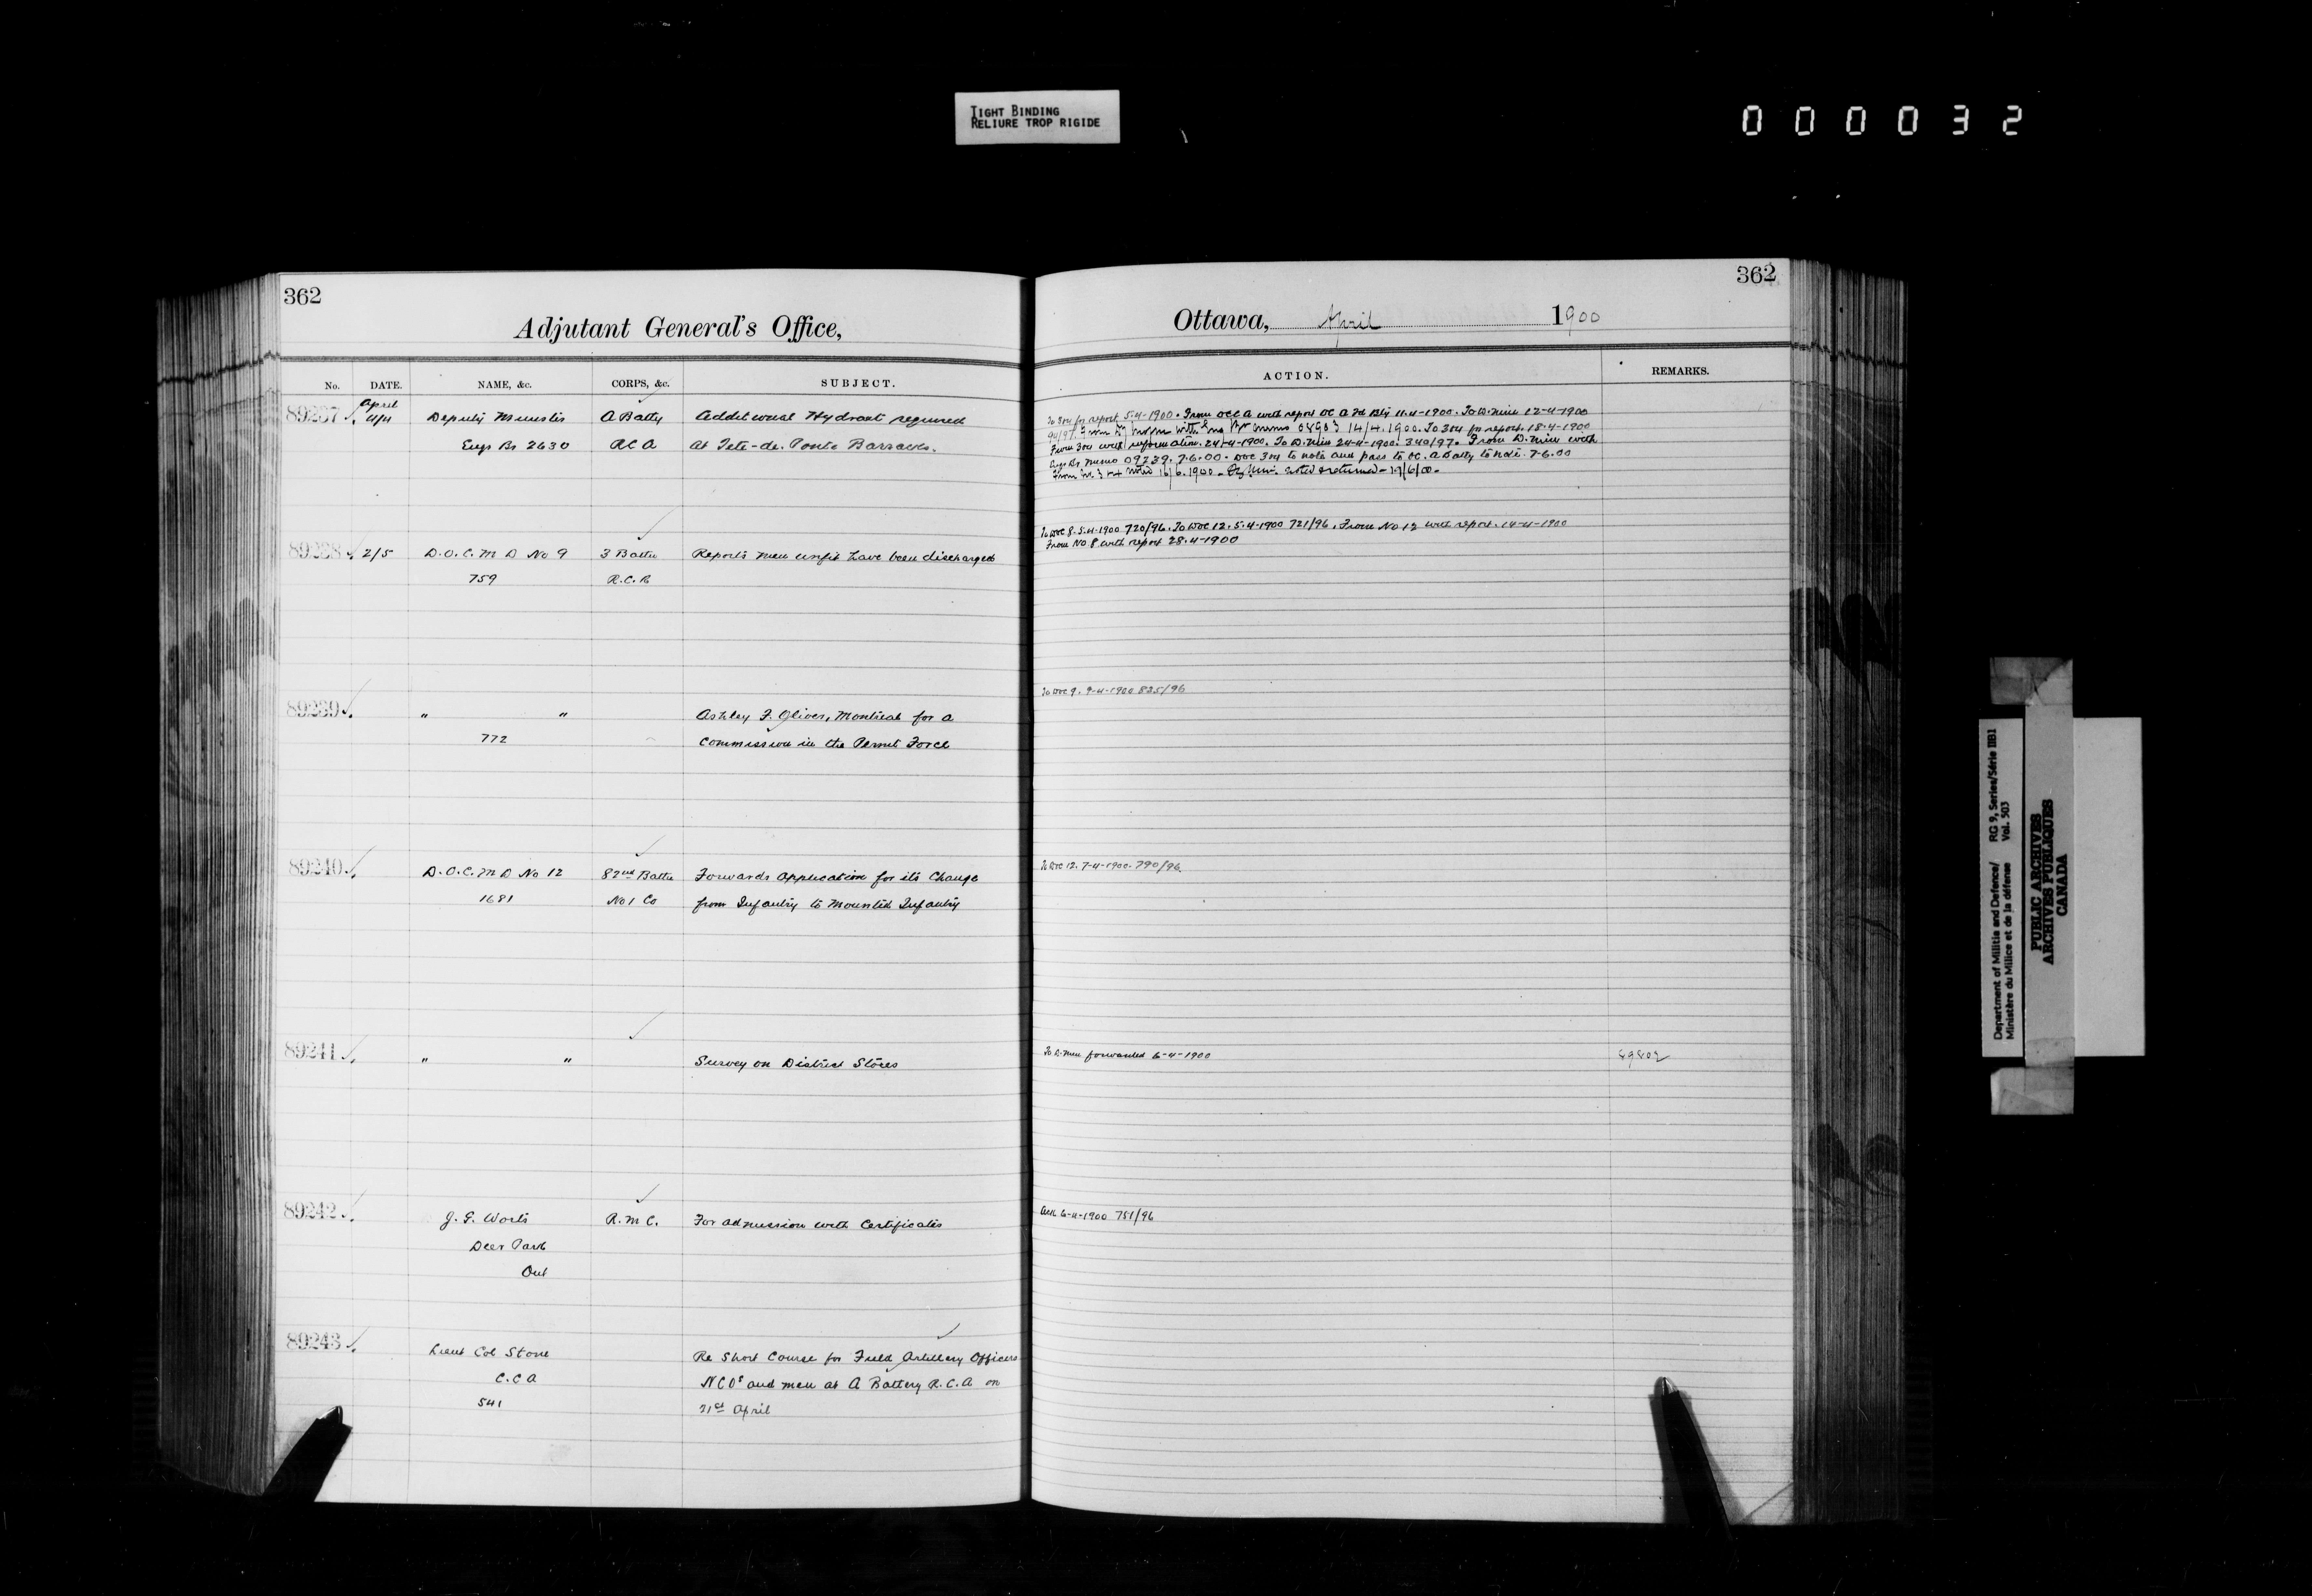 TIGHT BINDING
RELIURE TROP RIGIDE
000032
362
Adjutant General's Office,
No. DATE. NAME, &c. CORPS, &c. SUBJECT.
April
89237 4/4 Deputy Minister A Batty Additional Hydrant required
Engs Br 2630 RCA at Tete-de-Ponte Barracks.
89238 2/5 D.O.C. M D No 9 3 Battn Reports men unfit have been discharged
759 R.C.R
89239 " " Ashley F. Oliver, Montreal for a
772 Commission in the Permt Force
89240 D.O.C. M D No 12 82nd Battn Forwards application for its Change
1681 No 1 Co from Infantry to Mounted Infantry
89241 " " Survey on District Stores
89242 J. G. Worts R.M.C. For admission with Certificates
Deer Park
Ont
89243 Lieut Col Stone Re Short Course for Field Artillery Officers
C.C A NCOs and men at A Battery R.C.A on
541 21st April
362
Ottawa, April 1900
ACTION. REMARKS.
To 3&4 for report 5-4-1900. From OCCA with report OC A Fd Bty 11-4-1900. To D. Min 12-4-1900
90/97. From memo 14/4.1900. To 3&4 for report. 18-4-1900
From 3&4 with information. 24-4-1900. To D. Min 24-4-1900. 340/97. From D. Min with
Engs Br memo 09239. 7.6.00. DOC 3&4 to note and pass to OC. A Batty to note. 7-6.00
From 3 & 4 noted 16/6.1900. Dy Min. noted & returned - 19/6/00.
To DOC 8. 5-4-1900 720/96. To DOC 12. 5-4-1900 721/96. From No 12 with report. 14-4-1900
From No 8 with report 28.4-1900
To DOC 9. 9-4-1900 825/96
To DOC 12. 7-4-1900. 790/96.
To D. Min forwarded 6-4-1900 89802
Ack 6-4-1900 751/96
Department of Militia and Defence/ RG 9, Series/Série IIB1
Ministère du Milice et de la défense Vol. 503
PUBLIC ARCHIVES
ARCHIVES PUBLIQUES
CANADA